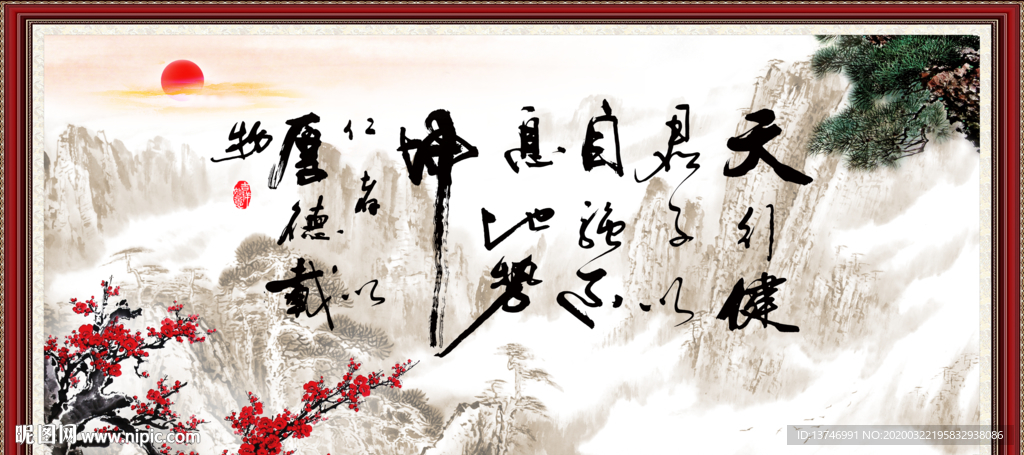 天行健
君子以
自强不
息地势
坤
仁者以
厚德载
物
昵图网 www.nipic.com
ID:13746991 NO:20200322195832938086